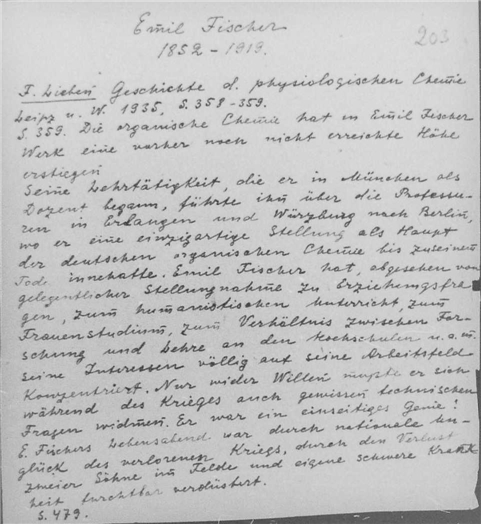 Emil Fischer
1852 - 1919.
203
F. Lieben Geschichte d. physiologischen Chemie
Leipz u. W. 1935, S. 358-359.
S. 359. Die organische Chemie hat in Emil Fischer
Werk eine vorher noch nicht erreichte Höhe
erstiegen
Seine Lehrtätigkeit, die er in München als
Dozent begann, führte ihn über die Professu-
ren in Erlangen und Würzburg nach Berlin,
wo er eine einzigartige Stellung als Haupt
der deutschen organischen Chemie bis zu seinem
Tode innehatte. Emil Fischer hat, abgesehen von
gelegentlicher Stellungnahme zu Erziehungsfra-
gen, zum humanistischen Unterricht, zum
Frauenstudium, zum Verhältnis zwischen For-
schung und Lehre an den Hochschulen u.a.m.
seine Interessen völlig auf seine Arbeitsfeld
Konzentriert. Nur wider Willen mußte er sich
während des Krieges auch gewissen technischen
Fragen widmen. Er war ein einseitiges Genie!
E. Fischers Lebensabend war durch nationale Un-
glück des verlorenen Kriegs, durch den Verlust
zweier Söhne im Felde und eigene schwere Krank
heit furchtbar verdüstert.
S. 479.